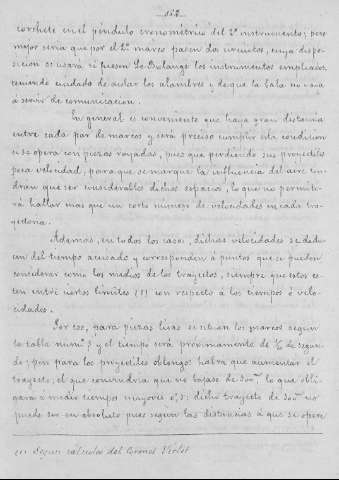 152
corchete en el péndulo cronométrico del 2º instrumento; pero
mejor seria que por el 2º marco pasen dos circuitos, cuya dispo-
sicion se usará si fuesen Le-Boulangé los instrumentos empleados,
teniendo cuidado de aislar los alambres y de que la bala no vaya
á servir de comunicacion.
En general es conveniente que haya gran distancia
entre cada par de marcos y será preciso cumplir esta condicion
si se opera con piezas rayadas, pues que perdiendo sus proyectiles
poca velocidad, para que se marque la influencia del aire ten-
drán que ser considerables dichos espacios, lo que no permiti-
rá hallar mas que un corto número de velocidades en cada tra-
yectoria.
Ademas, en todos los casos, dichas velocidades se dedu-
cen del tiempo acusado y corresponden á puntos que se pueden
considerar como los medios de los trayectos, siempre que estos es-
ten entre ciertos limites (1) con respecto á los tiempos ó velo-
cidades.
Por eso, para piezas lisas se situan los marcos segun
la tabla num. 5 y el tiempo será proximamente de 1/10 de segun-
do; pero para los proyectiles oblongos habrá que aumentar el
trayecto, el que convendria que no bajase de 300 m, lo que obli-
gará á medir tiempos mayores 0",5; dicho trayecto de 300 m no
puede ser en absoluto pues segun las distancias á que se opere
(1) Segun cálculos del Coronel Violet